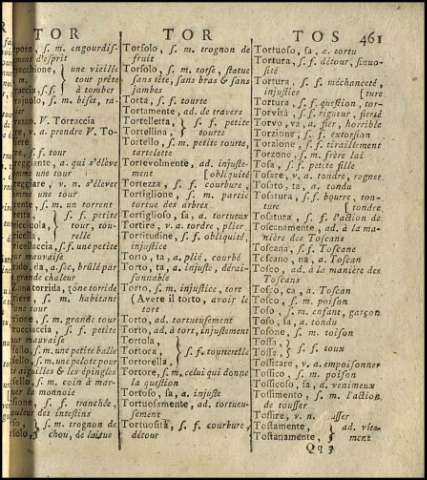 TOR TOR TOS 461
s. m. engourdis-
ment d'esprit
une vieille
tour prête
à tomber
s. m. biset, ra-
V. Torraccia
v. a. prendre V. To-
s. f. tour
a. qui s'élève
comme une tour
v. n. s'élever
comme une tour
s. m. un torrent
s. f. petite
tour, tou-
relle
s. f. une petite
tour mauvaise
da, a. sec, brûlé par
grande chaleur
torrida, zône torride
s. m. habitant
une tour
s. m. grande tour
s. f. petite
mauvaise
s. m. une petite balle
s. m. une pelote pour
aiguilles & les épingles
s. m. coin à mar-
la monnoie
s. f. tranchée,
douleur des intestins
s. m. trognon de
chou, de laitue
Torsolo, s. m. trognon de
fruit
Torsolo, s. m. torse, statue
sans tête, sans bras & sans
jambes
Torta, s. f. tourte
Tortamente, ad. de travers
Tortelletta, } s. f. petite
Tortellina, } tourte
Tortello, s. m. petite tourte,
tartelette
Tortevolmente, ad. injuste-
ment [obliquité
Tortezza, s. f. courbure,
Tortiglione, s. m. partie
tortue des arbres
Tortiglioso, sa, a. tortueux
Tortire, v. a. tordre, plier
Tortitudine, s. f. obliquité,
injustice
Torto, ta, a. plié, courbé
Torto, ta, a. injuste, dérai-
sonnable
Torto, s. m. injustice, tort
(Avere il torto, avoir le
tort
Torto, ad. tortueusement
Torto, ad. à tort, injustement
Tortola, }
Tortora, } s. f. tourterelle
Tortorella, }
Tortore, s. m. celui qui donne
la question
Tortoso, sa, a. injuste
Tortuosamente, ad. tortueu-
sement
Tortuosità, s. f. courbure,
détour
Tortuoso, sa, a. tortu
Tortura, s. f. détour, sinuo-
sité
Tortura, s. f. méchanceté,
injustice [ture
Tortura, s. f. question, tor-
Torvità, s. f. rigueur, fierté
Torvo, va, a. fier, horrible
Torzione, s. f. extorsion
Torzione, s. f. tiraillement
Torzone, s. m. frère lai
Tosa, s. f. petite fille
Tosare, v. a. tondre, rogner
Tosato, ta, a. tondu
Tosatura, s. f. bourre, ton-
ture [tondre
Tosatura, s. f. l'action de
Toscanamente, ad. à la ma-
nière des Toscans
Toscana, s. f. Toscane
Toscano, na, a. Toscan
Tosco, ad. à la manière des
Toscans
Tosco, ca, a. Toscan
Tosco, s. m. poison
Toso, s. m. enfant, garçon
Toso, sa, a. tondu
Tosone, s. m. toison
Tossa, } s. f. toux
Tosse, }
Tossicare, v. a. empoisonner
Tossico, s. m. poison
Tossicoso, sa, a. venimeux
Tossimento, s. m. l'action
de tousser
Tossire, v. n. tousser
Tostamente, } ad. vîte-
Tostanamente, } ment
Qq 3